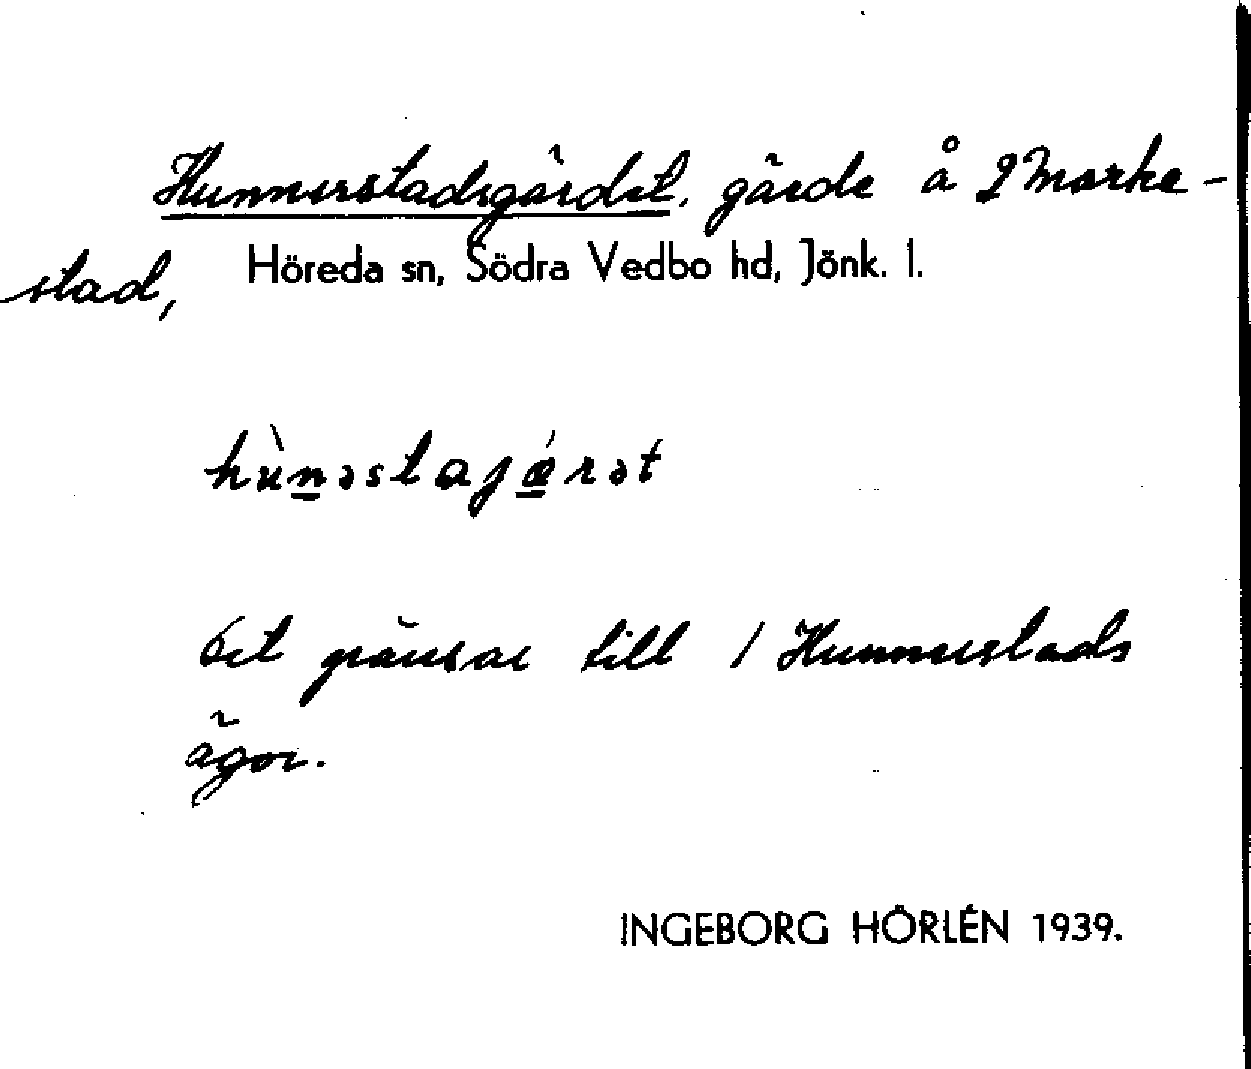 Hunnerstadsgärdet, gärde å 2 Marke-
stad, Höreda sn, Södra Vedbo hd, Jönk. l.
hùnəstajǽrət
Det gränsar till 1 Hunnerstads
ägor.
INGEBORG HÖRLÉN 1939.